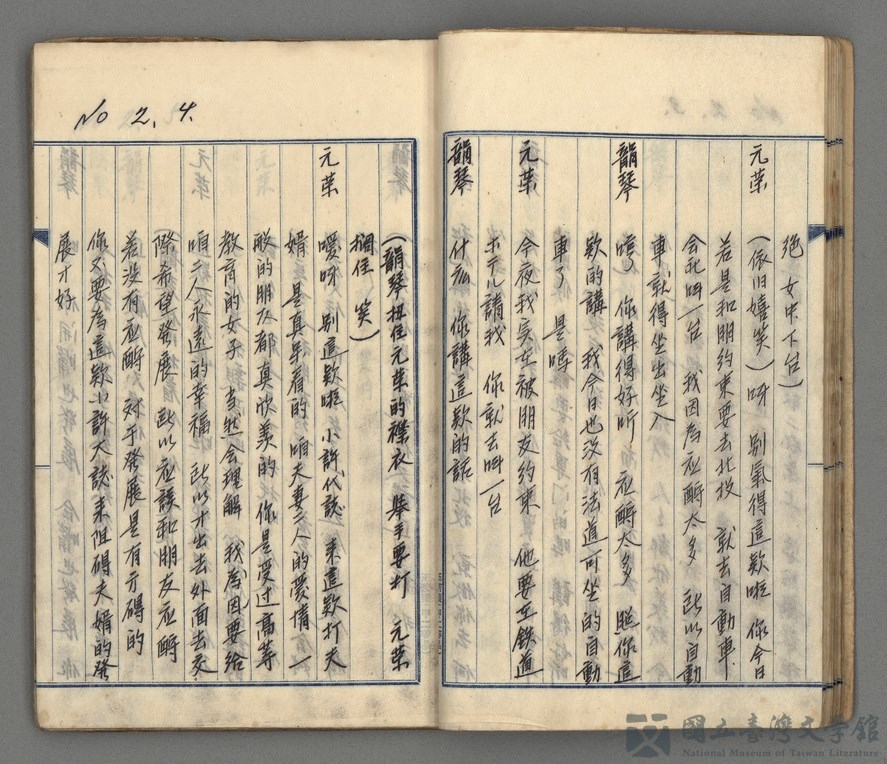 絶 女中下台)
元葉 (依旧嬉笑) 呀 別氣得這欵啦 你今日
若是和朋約束要去北投 就去自動車
会社叫一台 我因為应酬太多 所以自動
車就得坐出坐入
韻琴 哼 你講得好听 应酬太多 照你這
欵的講 我今日也沒有法道可坐的自動
車了 是嗎
元葉 今夜我実在被朋友約束 他要在鉄道
ホテル請我 你就去叫一台
韻琴 什庅 你講這欵的話
No 2.4.
(韻琴扭住元葉的襟衣 举手要打 元葉
捆住 笑)
元葉 噯呀 別這欵啦 小許代誌 来這欵打夫
婿 是真呆看的 咱夫妻二人的愛情 一
般的朋友都真欣羡的 你是受过高等
教育的女子 当然会理解 我為因要给
咱二人永遠的幸福 所以才出去外面去交
際希望發展 所以应該和朋友应酬
若没有应酬 对于發展是有方碍的
你又要為這欵小許大誌来阻碍夫婿的發
展才好
國立臺灣文學館
National Museum of Taiwan Literature